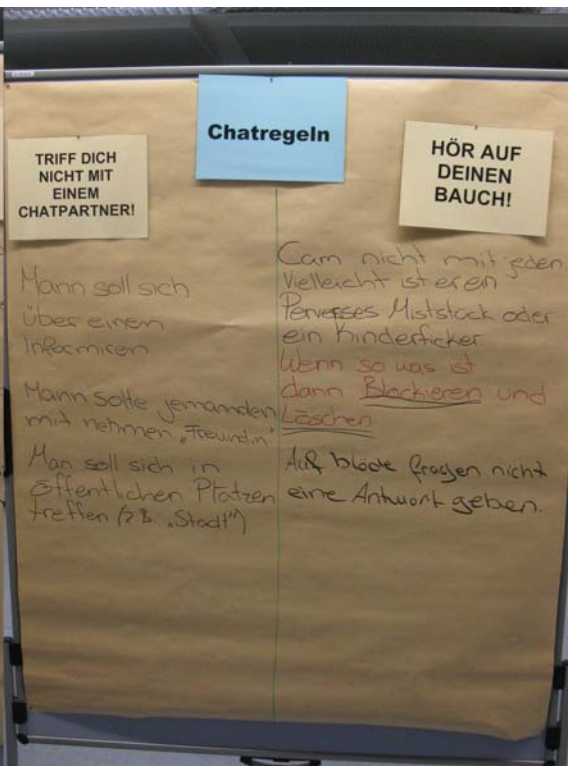 Chatregeln
TRIFF DICH
NICHT MIT
EINEM
CHATPARTNER!
Mann soll sich
über einem
Informiren
Mann solte jemannden
mit nehmen „Freundin"
Man soll sich in
öffentlichen Platzen
treffen (z.B. „Stadt")
HÖR AUF
DEINEN
BAUCH!
Cam nicht mit jeden
Vielleicht ist er ein
Perverses Miststück oder
ein Kinderficker
Wenn so was ist
dann Blockieren und
Löschen
Auf blöde fragen nicht
eine Antwort geben.